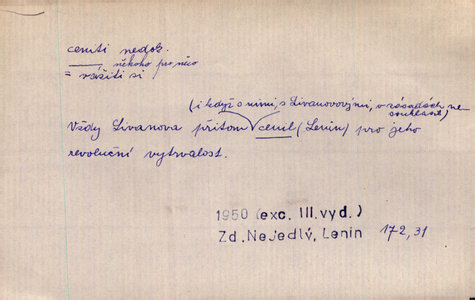 ceniti nedok.
—— někoho pro něco
= vážiti si
(i když s nimi, s Livanovovými, v zásadách ne-
souhlasil)
Vždy Livanova přitom cenil (Lenin) pro jeho
revoluční vytrvalost.
1950 (exc. III. vyd.)
Zd. Nejedlý, Lenin 172, 31